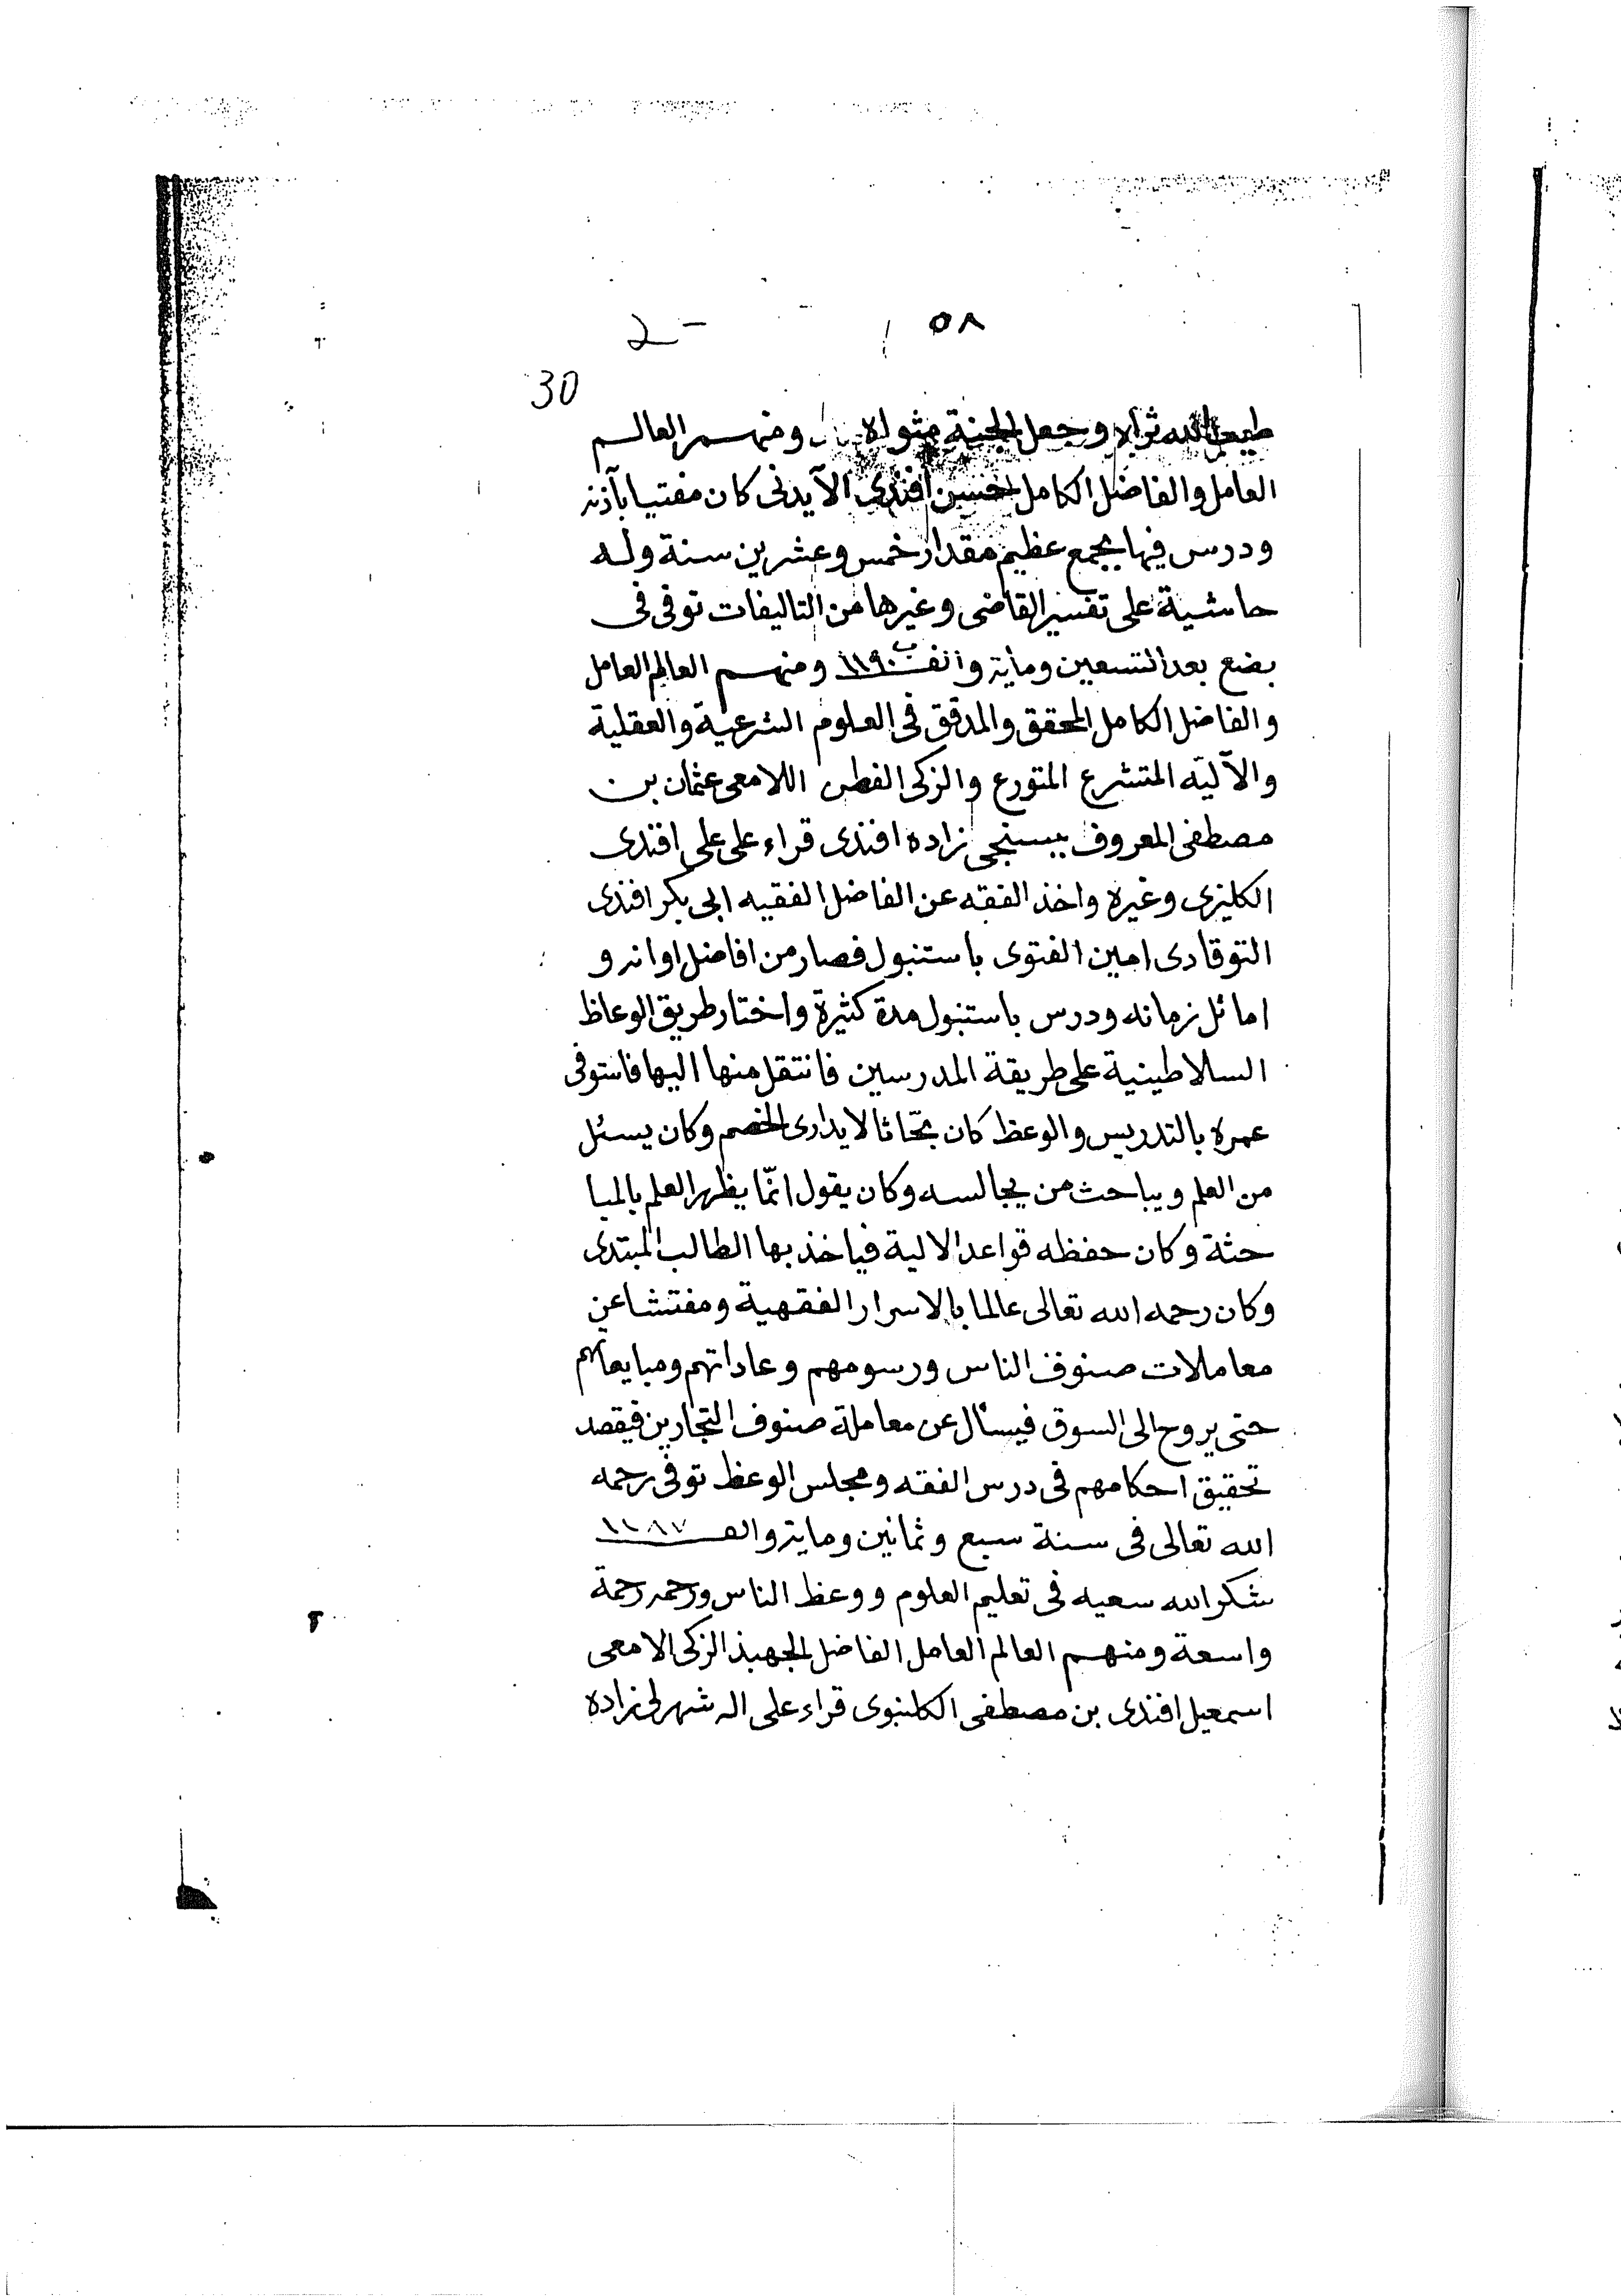 ٥٨
30
طيب الله ثراه وجعل الجنة مثواه ومنهم العالم
العامل والفاضل الكامل حسين افندى الآيدنى كان مفتيا بآذنه
ودرس فيها بجمع عظيم مقدار خمس وعشرين سنة وله
حاشية على تفسير القاضى وغيرها من التاليفات توفى فى
بضع بعد التسعين ومأية والف ١١٩٠ ومنهم العالم العامل
والفاضل الكامل المحقق والمدقق فى العلوم الشرعية والعقلية
والآليّه المتشرع المتورع والزكى الفطن اللامعى عثمان بن
مصطفى المعروف بيسنجى زاده افندى قراء على على افندى
الكليزى وغيره واخذ الفقه عن الفاضل الفقيه ابى بكر افندى
التوقادى امين الفتوى باستنبول فصار من افاضل اوانه و
اماثل زمانه ودرس باستنبول مدة كثيرة واختار طريق الوعاظ
السلاطينية على طريقة المدرسين فانتقل منها اليها فاستوفى
عمره بالتدريس والوعظ كان بحّاثا لا يدارى الخصم وكان يسئل
من العلم ويباحث من يجالسه وكان يقول انّما يظهر العلم بالمبا
حثة وكان حفظه قواعد الالية فياخذ بها الطالب المبتدى
وكان رحمه الله تعالى عالما بالاسرار الفقهية ومفتشا عن
معاملات صنوف الناس ورسومهم وعاداتهم ومبايعاتهم
حتى يروح الى السوق فيسأل عن معاملة صنوف التجارين فيقصد
تحقيق احكامهم فى درس الفقه ومجلس الوعظ توفى رحمه
الله تعالى فى سنة سبع وثمانين وماية والف ١١٨٧
شكر الله سعيه فى تعليم العلوم ووعظ الناس ورحمه رحمة
واسعة ومنهم العالم العامل الفاضل الجهبذ الزكى الامعى
اسمعيل افندى بن مصطفى الكلنبوى قراء على اله شهرلى زاده